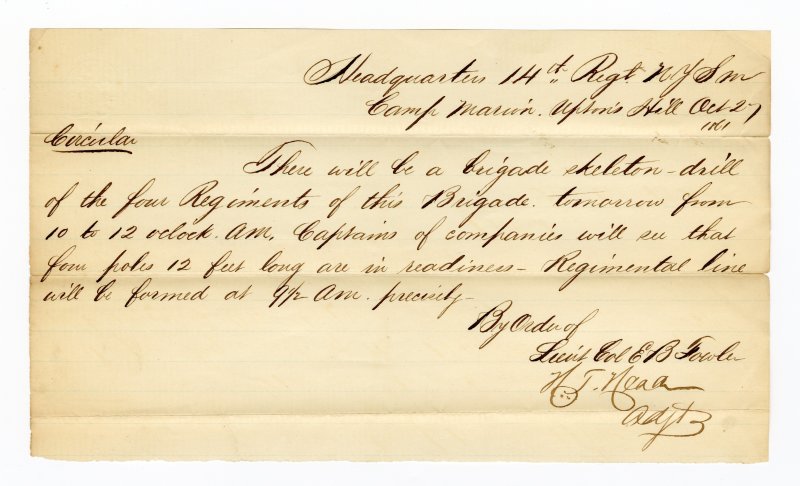 Headquarters 14th Regt. N Y S M
Camp Marion. Upton's Hill Oct 27
1861
Circular
There will be a brigade skeleton-drill
of the four Regiments of this Brigade. tomorrow from
10 to 12 oclock. AM. Captains of companies will see that
four poles 12 feet long are in readiness - Regimental line
will be formed at 9½ AM. precisely -
By Order of
Lieut Col E B Fowler
T.
Adjt